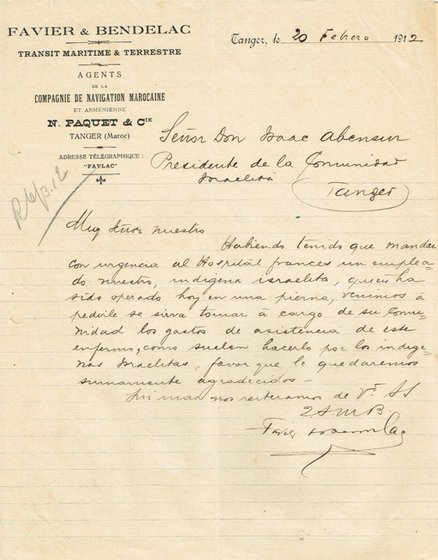 FAVIER & BENDELAC
TRANSIT MARITIME & TERRESTRE
AGENTS
DE LA
COMPAGNIE DE NAVIGATION MAROCAINE
ET ARMÉNIENNE
N. PAQUET & CIE
TANGER (Maroc)
ADRESSE TÉLÉGRAPHIQUE :
"FAVLAC"
Tanger, le 20 Febero 1912
Señor Don Isaac Abensur
Presidente de la Comunidad
Israelita
Tanger
Muy Señor nuestro
Habiendo tenido que mandar
con urgencia al Hospital frances un emplea-
do nuestro, indigena israelita, quien ha
sido operado hoy en una pierna, venimos a
pedirle se sirva tomar a cargo de su Comu-
nidad los gastos de asistencia de este
enfermo, como suelen hacerlo por los indige-
nas Israelitas, favor que le quedaremos
sumamente agradecidos -
Sin mas nos reiteramos de Vd. SS
Q S M B